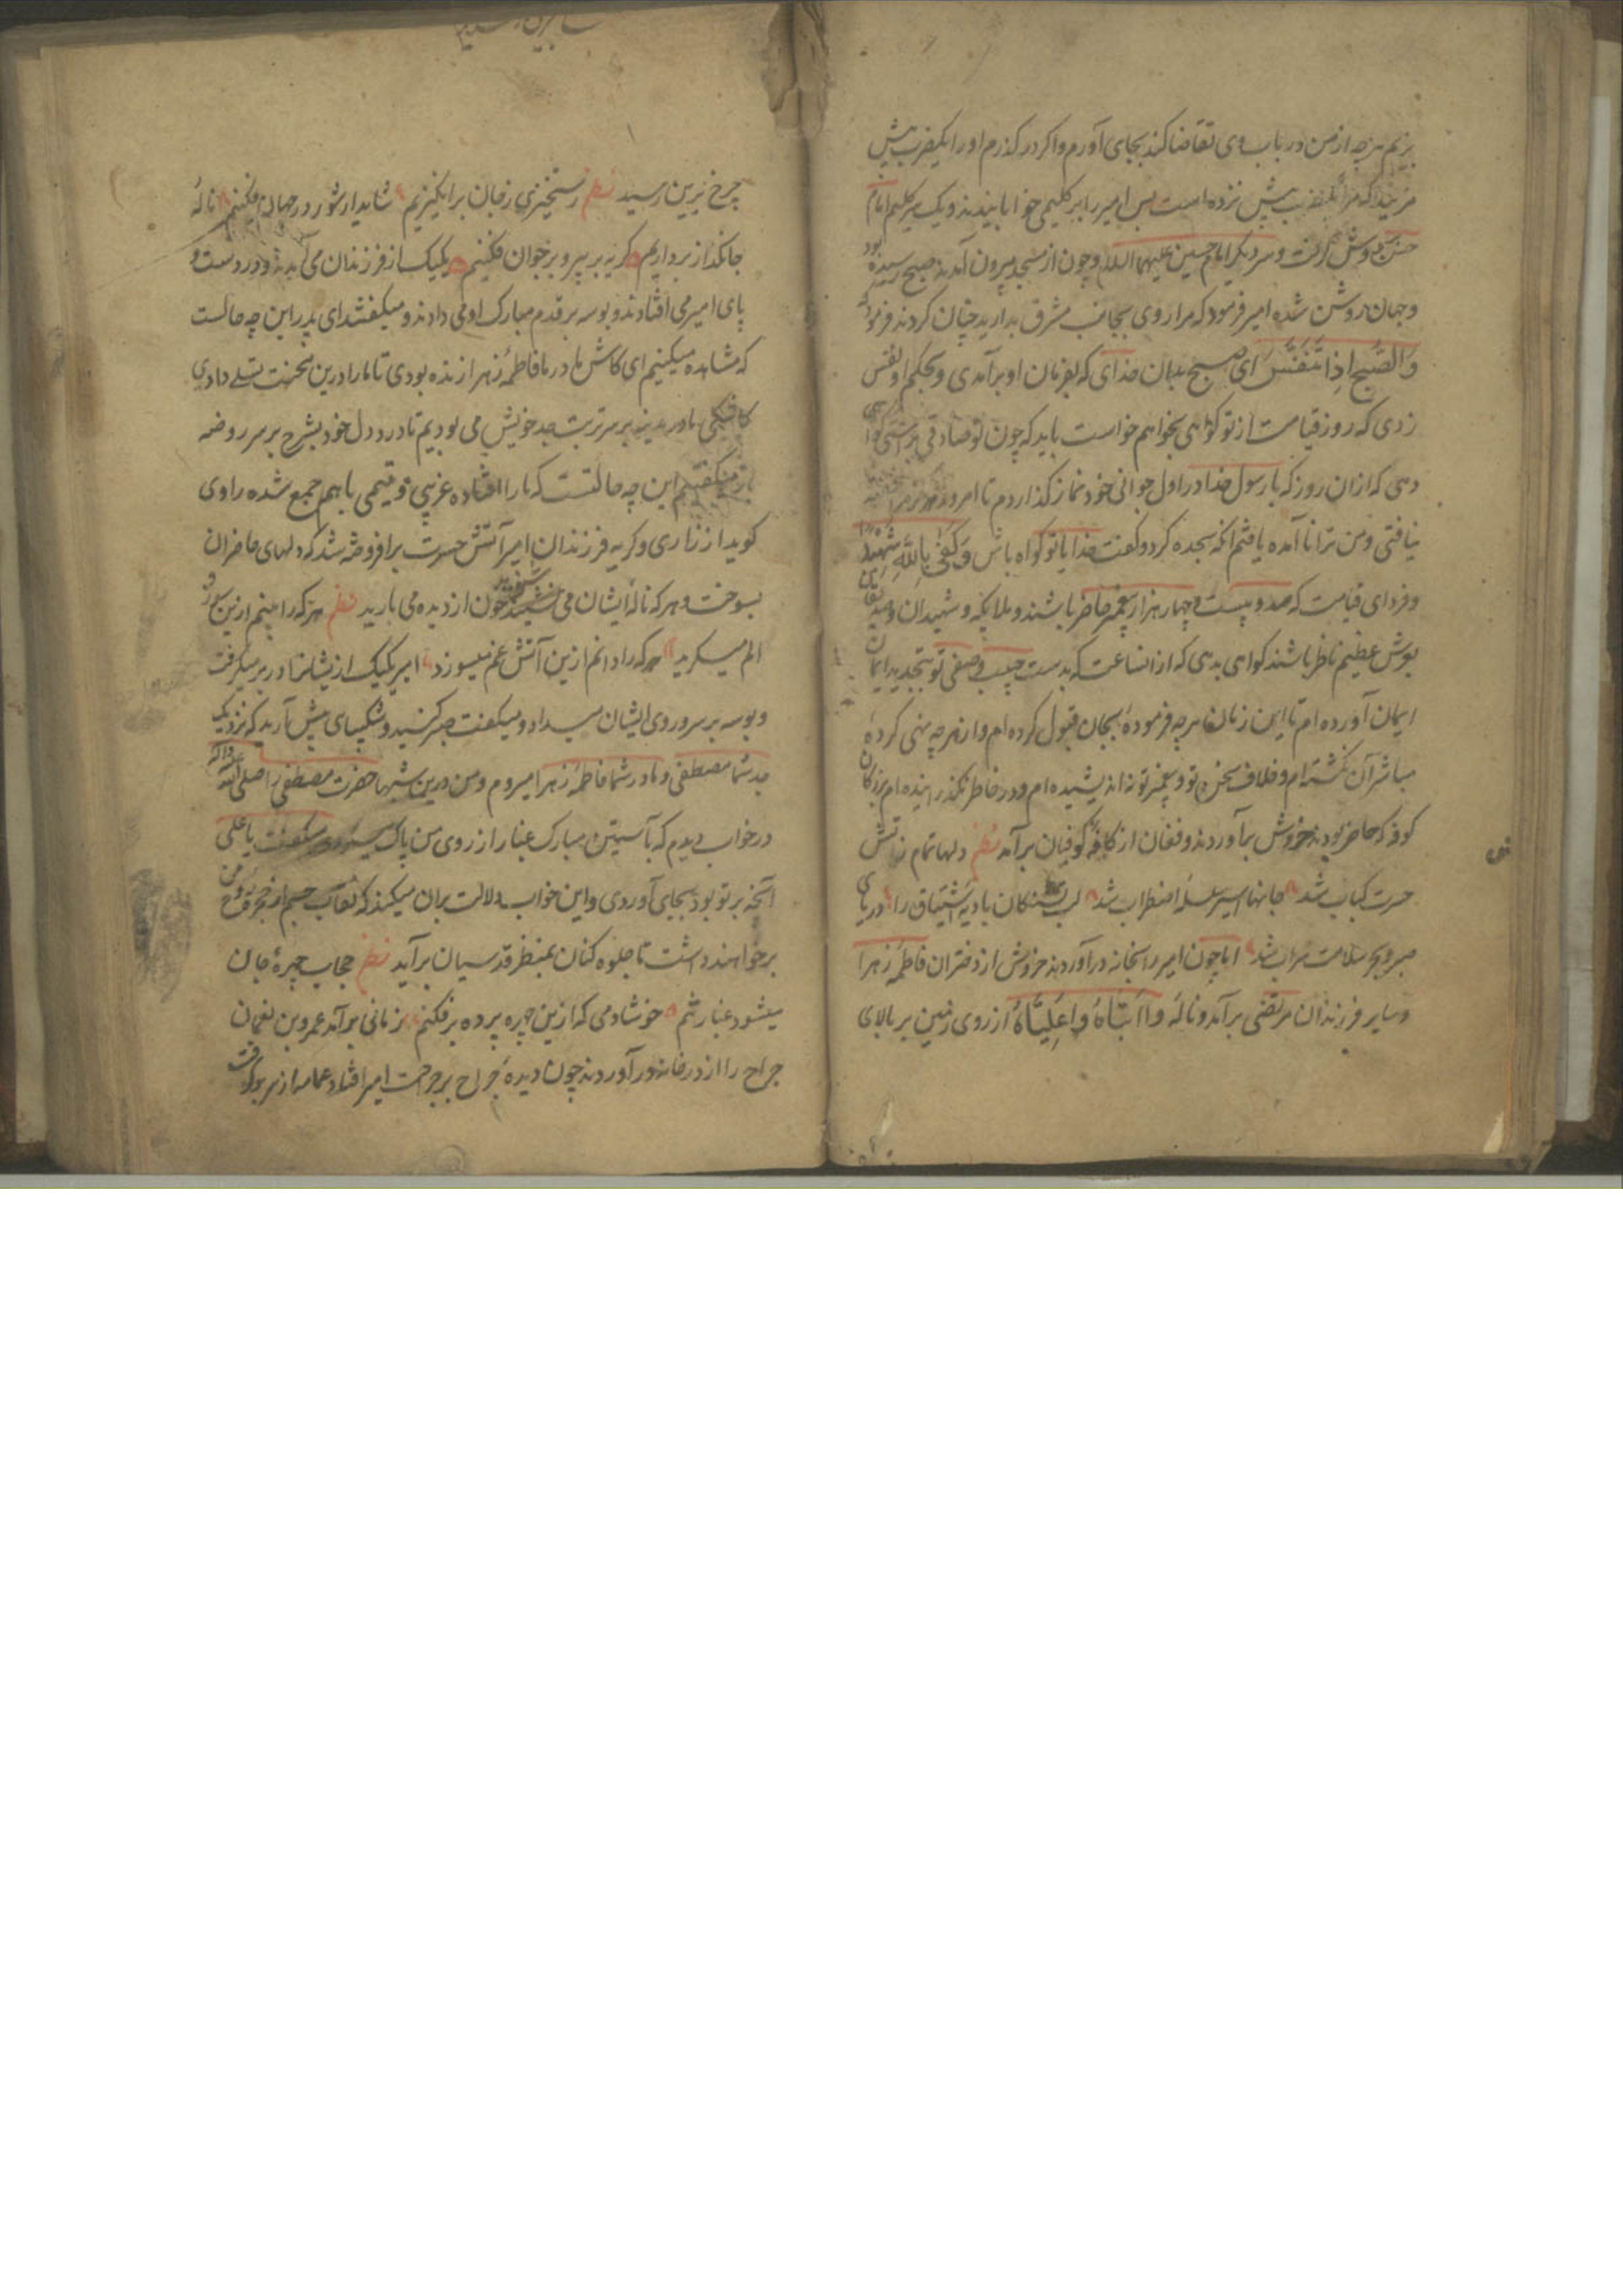 بزیم هرچه از من در باب وی تقاضا کند بجای آورم و اگر در گذرم او را یکضرب بیش
مزنید که مرا یکضرب بیش نزده است پس امیر را بر گلیمی خوابانیدند و یک سر گلیم امام
حسن بدوش گرفت و سر دیگر امام حسین علیهما السلام و چون از مسجد بیرون آمدند صبح رسیده بود
و جهان روشن شده امیر فرمود که مرا روی بجانب مشرق بدارید چنان کردند فرمود که
وَالصُّبحِ اِذا تَنَفَّسَ ای صبح بدان خدای که بفرمان او برآمدی و بحکم او نفس
زدی که روز قیامت از تو گواهی بخواهم خواست باید که چون تو صادقی براستی گواهی
دهی که ازان روز که با رسول خدا در اول جوانی خود نماز گذاردم تا امروز هرگز مرا خفته
نیافتی و من ترا نا آمده یافتم آنکه سجده کرد و گفت خدایا تو گواه باش وَکَفی بِاللّهِ شَهِیداً
و فردای قیامت که صد و بیست و چهار هزار پیغمبر حاضر باشند و ملایکه و شهیدان و صدیقان
بعرش عظیم ناظر باشند گواهی بدهی که از انساعت که بدست حبیب و صفی تو بتجدید ایمان
ایمان آورده ام تا این زمان هرچه فرمودهٔ بجان قبول کرده ام و از هرچه نهی کردهٔ
مباشر آن نگشته ام و خلاف سخن تو و پیغمبر تو نه اندیشیده ام و در خاطر نگذرانیده ام بزرگان
کوفه که حاضر بودند خروش برآوردند و فغان از کافهٔ کوفیان برآمد نظم دلها تمام ز آتش
حسرت کباب شد جانها اسیر سلسلهٔ اضطراب شد لب تشنگان بادیهٔ اشتیاق را دریای
صبر و بحر سلامت سراب شد اما چون امیر را بخانه درآوردند خروش از دختران فاطمهٔ زهرا
و سایر فرزندان مرتضی برآمد و نالهٔ وا اَبَتاهُ وا عَلِیّاهُ از روی زمین بر بالای
چرخ برین رسید نظم رستخیزی ز جهان برانگیزیم شاید ار شور در جهان فکنیم نالهٔ
جانگداز برداریم گریه بر پیر و بر جوان فکنیم یکیک از فرزندان می آمدند و در دست و
پای امیر می افتادند و بوسه بر قدم مبارک او می دادند و میگفتند ای پدر این چه حالست
که مشاهده میکنیم ای کاش مادر ما فاطمهٔ زهرا زنده بودی تا ما را درین محنت تسلی دادی
کاشکی ما در مدینه بر سر تربت جد خویش می بودیم تا درد دل خود بشرح بر سر روضه
باز میگفتیم این چه حالتست که ما را افتاده غریبی و یتیمی باهم جمع شده راوی
گوید از زاری و گریه فرزندان امیر آتش حسرت برافروخته شد که دلهای حاضران
بسوخت و هرکه نالهٔ ایشان می شنید خون از دیده می بارید نظم هرکه را بینم ازین سوز و
الم میگرید هرکه را دانم ازین آتش غم میسوزد امیر یکیک از یشانرا در بر میگرفت
و بوسه بر سر و روی ایشان میداد و میگفت صبر کنید و شکیبای پیش آرید که نزدیک
جد شما مصطفی و مادر شما فاطمهٔ زهرا میروم و من درین شبها حضرت مصطفی را صلی الله علیه و آله
در خواب دیدم که بآستین مبارک غبار از روی من پاک میکرد و میگفت یا علی
آنچه بر تو بود بجای آوردی و این خواب دلالت بران میکند که نقاب جسم از چهرهٔ روح من
برخواهند داشت تا جلوه کنان بمنظر قدسیان برآید نظم حجاب چهرهٔ جان
میشود غبار تنم خوشا دمی که ازین چهره پرده برفکنم زمانی برآمد عمرو بن نعمان
جراح را از در خانه درآوردند چون دیدهٔ جراح بر جراحت امیر افتاد عمامه از سر برگرفت